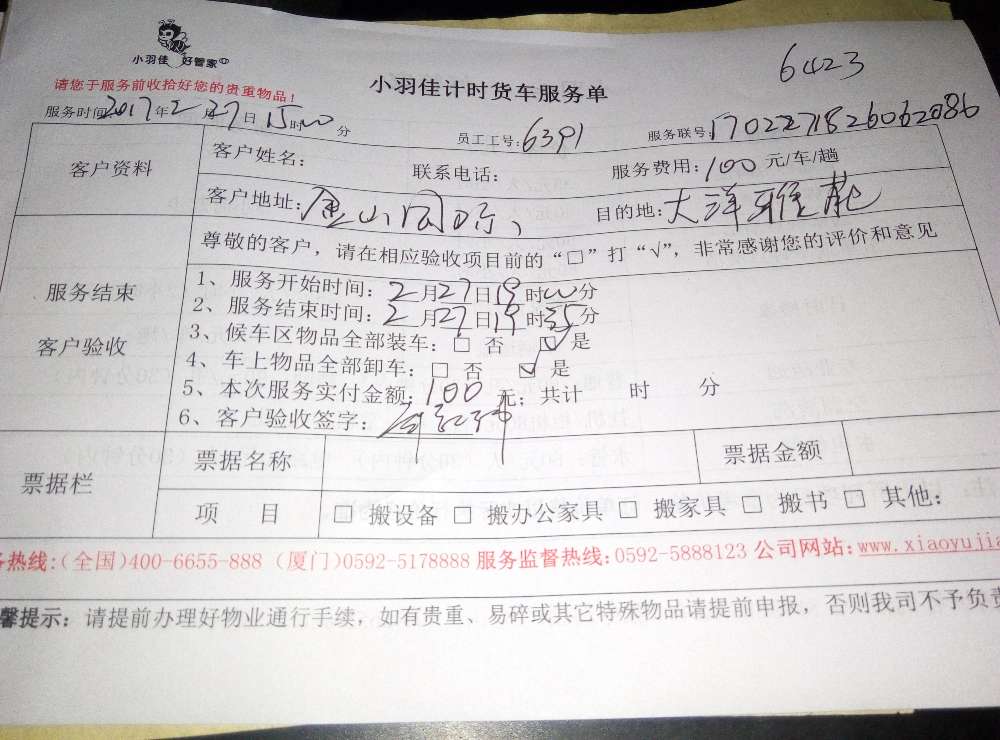 小羽佳 好管家
6423
请您于服务前收拾好您的贵重物品！
小羽佳计时货车服务单
服务时间2017年2月27日15时00分 员工工号:6391 服务联号:1702271826062086
客户资料
客户姓名： 联系电话： 服务费用：100元/车/趟
客户地址： 目的地：大洋雅苑
尊敬的客户，请在相应验收项目前的“□”打“√”，非常感谢您的评价和意见
服务结束
客户验收
1、服务开始时间：2月27日19时00分
2、服务结束时间：2月27日19时35分
3、候车区物品全部装车：□ 否 ☑ 是
4、车上物品全部卸车：□ 否 ☑ 是
5、本次服务实付金额：100元；共计 时 分
6、客户验收签字：
票据栏
票据名称 票据金额
项 目 □ 搬设备 □ 搬办公家具 □ 搬家具 □ 搬书 □ 其他：
务热线:(全国)400-6655-888 (厦门)0592-5178888 服务监督热线:0592-5888123 公司网站:www.xiaoyujia
馨提示：请提前办理好物业通行手续，如有贵重、易碎或其它特殊物品请提前申报，否则我司不予负责